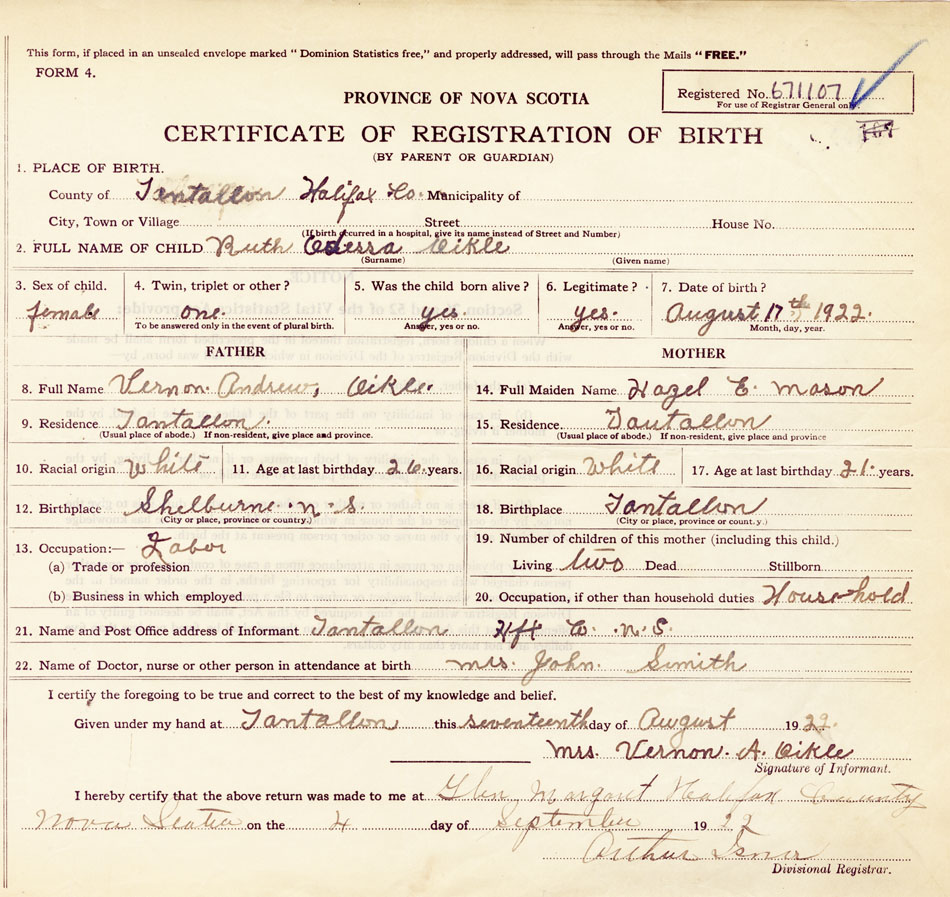 This form, if placed in an unsealed envelope marked "Dominion Statistics free," and properly addressed, will pass through the Mails "FREE."
FORM 4.
Registered No. 671107
For use of Registrar General only.
PROVINCE OF NOVA SCOTIA
CERTIFICATE OF REGISTRATION OF BIRTH
(BY PARENT OR GUARDIAN)
1. PLACE OF BIRTH.
County of Tantallon Halifax Co. Municipality of
City, Town or Village Street House No.
(If birth occurred in a hospital, give its name instead of Street and Number)
2. FULL NAME OF CHILD Ruth Odessa Oikle
(Surname) (Given name)
3. Sex of child. 4. Twin, triplet or other? 5. Was the child born alive? 6. Legitimate? 7. Date of birth?
female one. yes. yes. August 17th 1922.
To be answered only in the event of plural birth. Answer, yes or no. Answer, yes or no. Month, day, year.
FATHER MOTHER
8. Full Name Vernon Andrew, Oikle. 14. Full Maiden Name Hazel E. Mason
9. Residence Tantallon. 15. Residence. Tantallon
(Usual place of abode.) If non-resident, give place and province. (Usual place of abode.) If non-resident, give place and province
10. Racial origin White 11. Age at last birthday 26. years. 16. Racial origin White 17. Age at last birthday 21. years.
12. Birthplace Shelburne. N. S. 18. Birthplace Tantallon
(City or place, province or country.) (City or place, province or county.)
13. Occupation:— Labor 19. Number of children of this mother (including this child.)
(a) Trade or profession Living two Dead Stillborn
(b) Business in which employed 20. Occupation, if other than household duties Household
21. Name and Post Office address of Informant Tantallon Hfx Co. N. S.
22. Name of Doctor, nurse or other person in attendance at birth Mrs. John. Simith
I certify the foregoing to be true and correct to the best of my knowledge and belief.
Given under my hand at Tantallon, this seventeenth day of August 1922.
Mrs. Vernon. A. Oikle
Signature of Informant.
I hereby certify that the above return was made to me at Glen Margaret Halifax County
Nova Scotia on the 4 day of September 1922
Arthur
Divisional Registrar.